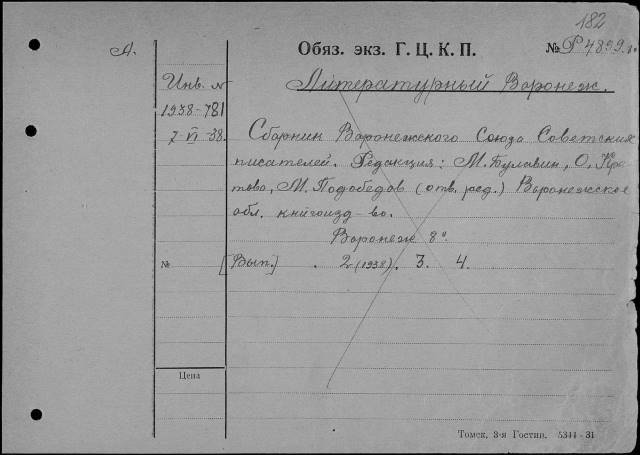 182
А.
Обяз. экз. Г. Ц. К. П.
№ Р 4899
Инв. №
1938-781
7 VI 38.
Литературный Воронеж.
Сборник Воронежского Союза Советских
писателей. Редакция: М. Булавин, О. Кре
това, М. Подобедов (отв. ред.) Воронежское
обл. книгоизд-во.
Воронеж 8°.
№ [Вып.] . 2 (1938). 3. 4.
Цена
Томск, 3-я Гостип. 5344-31